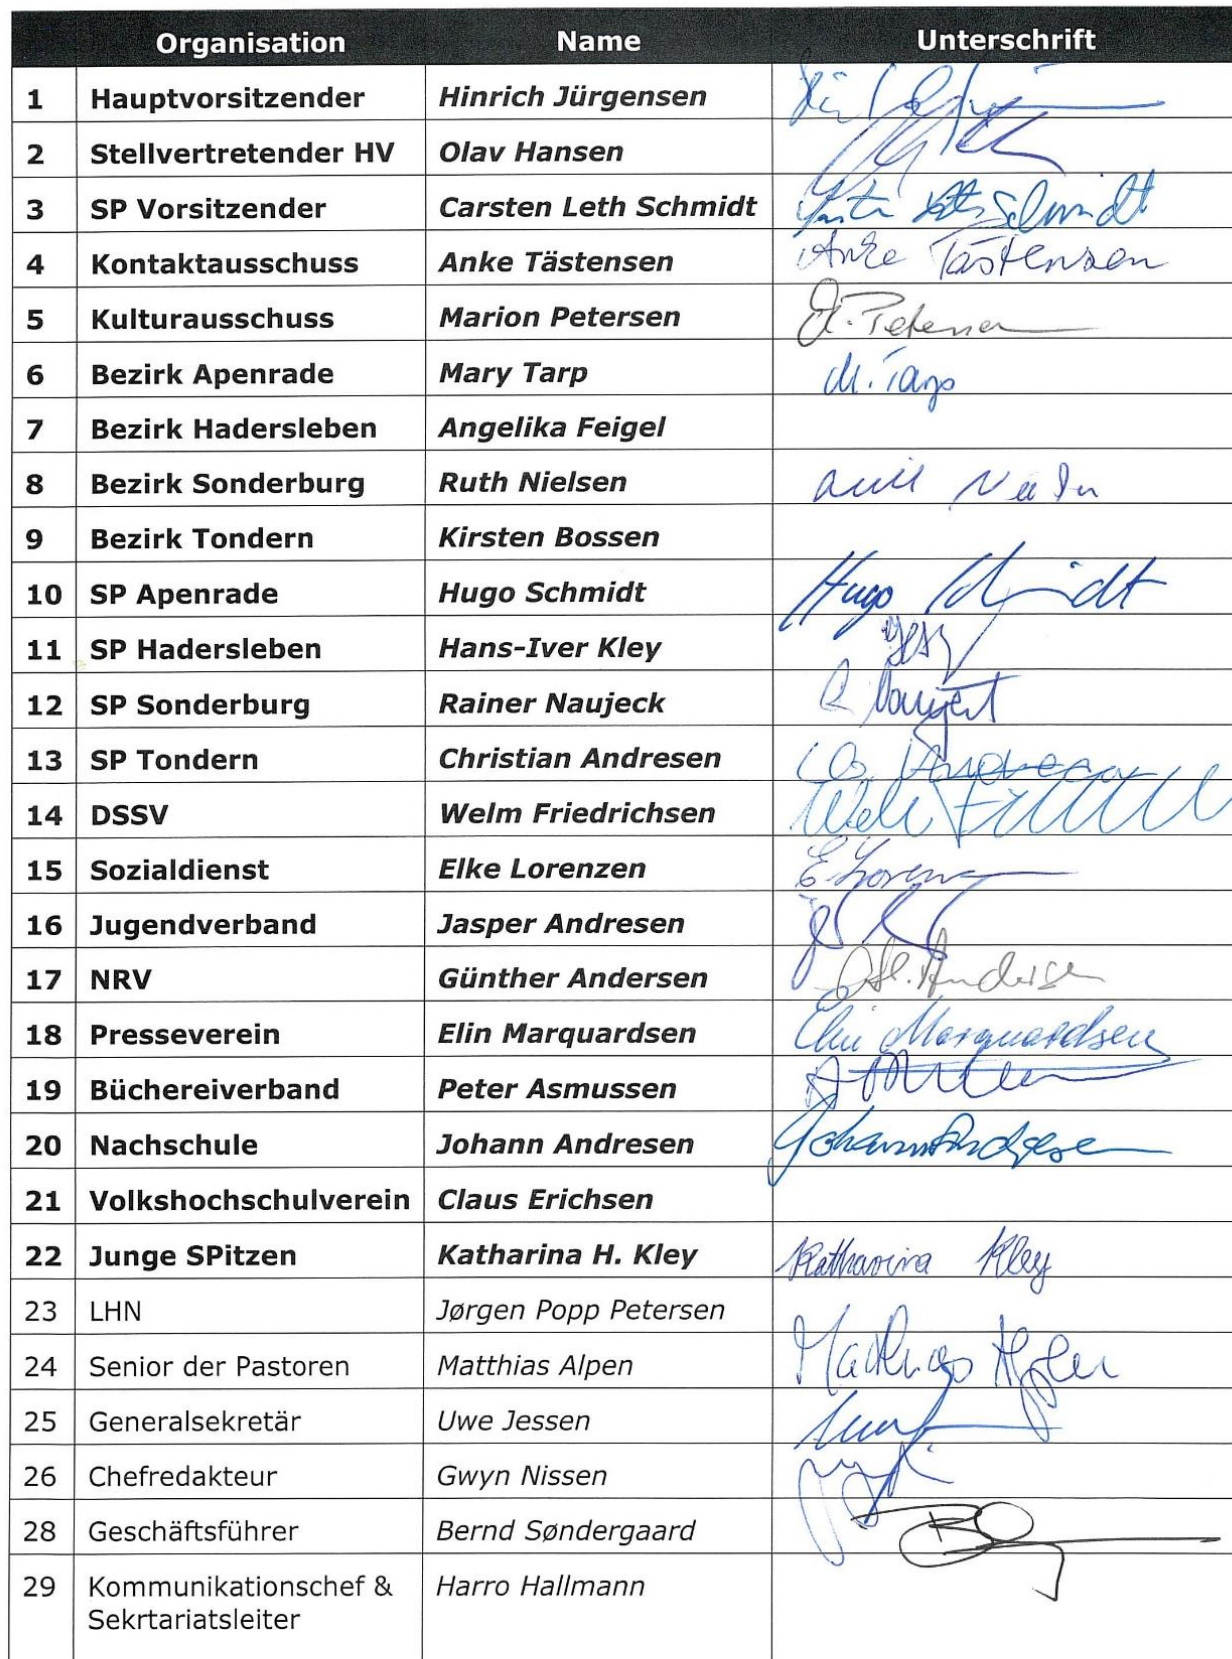 Organisation Name Unterschrift
1 Hauptvorsitzender Hinrich Jürgensen
2 Stellvertretender HV Olav Hansen
3 SP Vorsitzender Carsten Leth Schmidt Schmidt
4 Kontaktausschuss Anke Tästensen Anke Tästensen
5 Kulturausschuss Marion Petersen M. Petersen
6 Bezirk Apenrade Mary Tarp M. Tarp
7 Bezirk Hadersleben Angelika Feigel
8 Bezirk Sonderburg Ruth Nielsen
9 Bezirk Tondern Kirsten Bossen
10 SP Apenrade Hugo Schmidt Hugo Schmidt
11 SP Hadersleben Hans-Iver Kley
12 SP Sonderburg Rainer Naujeck
13 SP Tondern Christian Andresen
14 DSSV Welm Friedrichsen
15 Sozialdienst Elke Lorenzen
16 Jugendverband Jasper Andresen
17 NRV Günther Andersen Andersen
18 Presseverein Elin Marquardsen Elin Marquardsen
19 Büchereiverband Peter Asmussen
20 Nachschule Johann Andresen Johann Andresen
21 Volkshochschulverein Claus Erichsen
22 Junge SPitzen Katharina H. Kley Katharina Kley
23 LHN Jørgen Popp Petersen
24 Senior der Pastoren Matthias Alpen Matthias Alpen
25 Generalsekretär Uwe Jessen
26 Chefredakteur Gwyn Nissen
28 Geschäftsführer Bernd Søndergaard
29 Kommunikationschef & Harro Hallmann
Sekrtariatsleiter